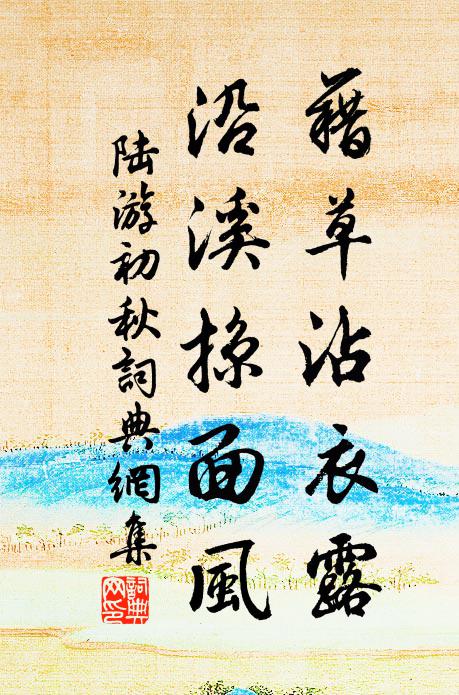 藉草沾衣露
沿溪掠面風
陸游初秋詞典網集
詞典